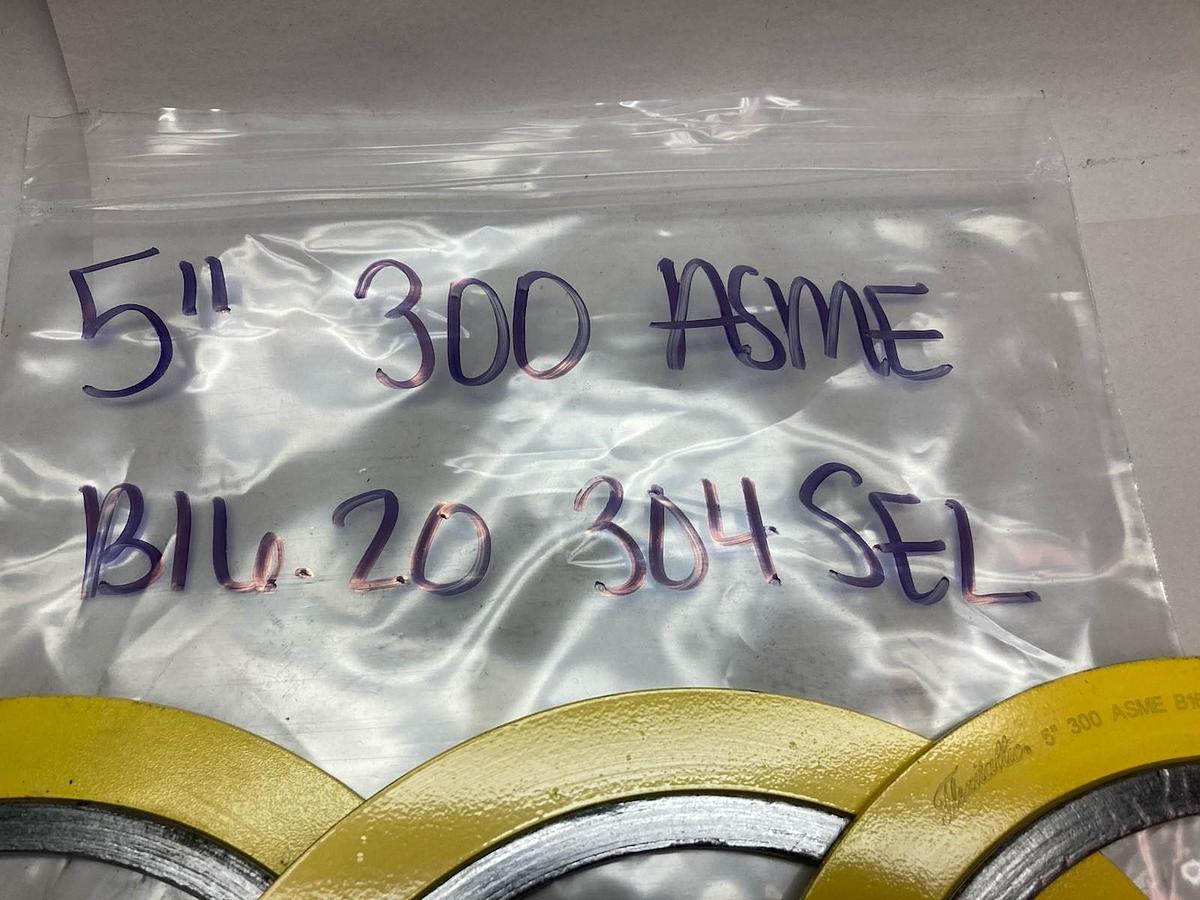 5" 300 ASME
B16.20 304 SEL
Flexitallic® 5" 300 ASME